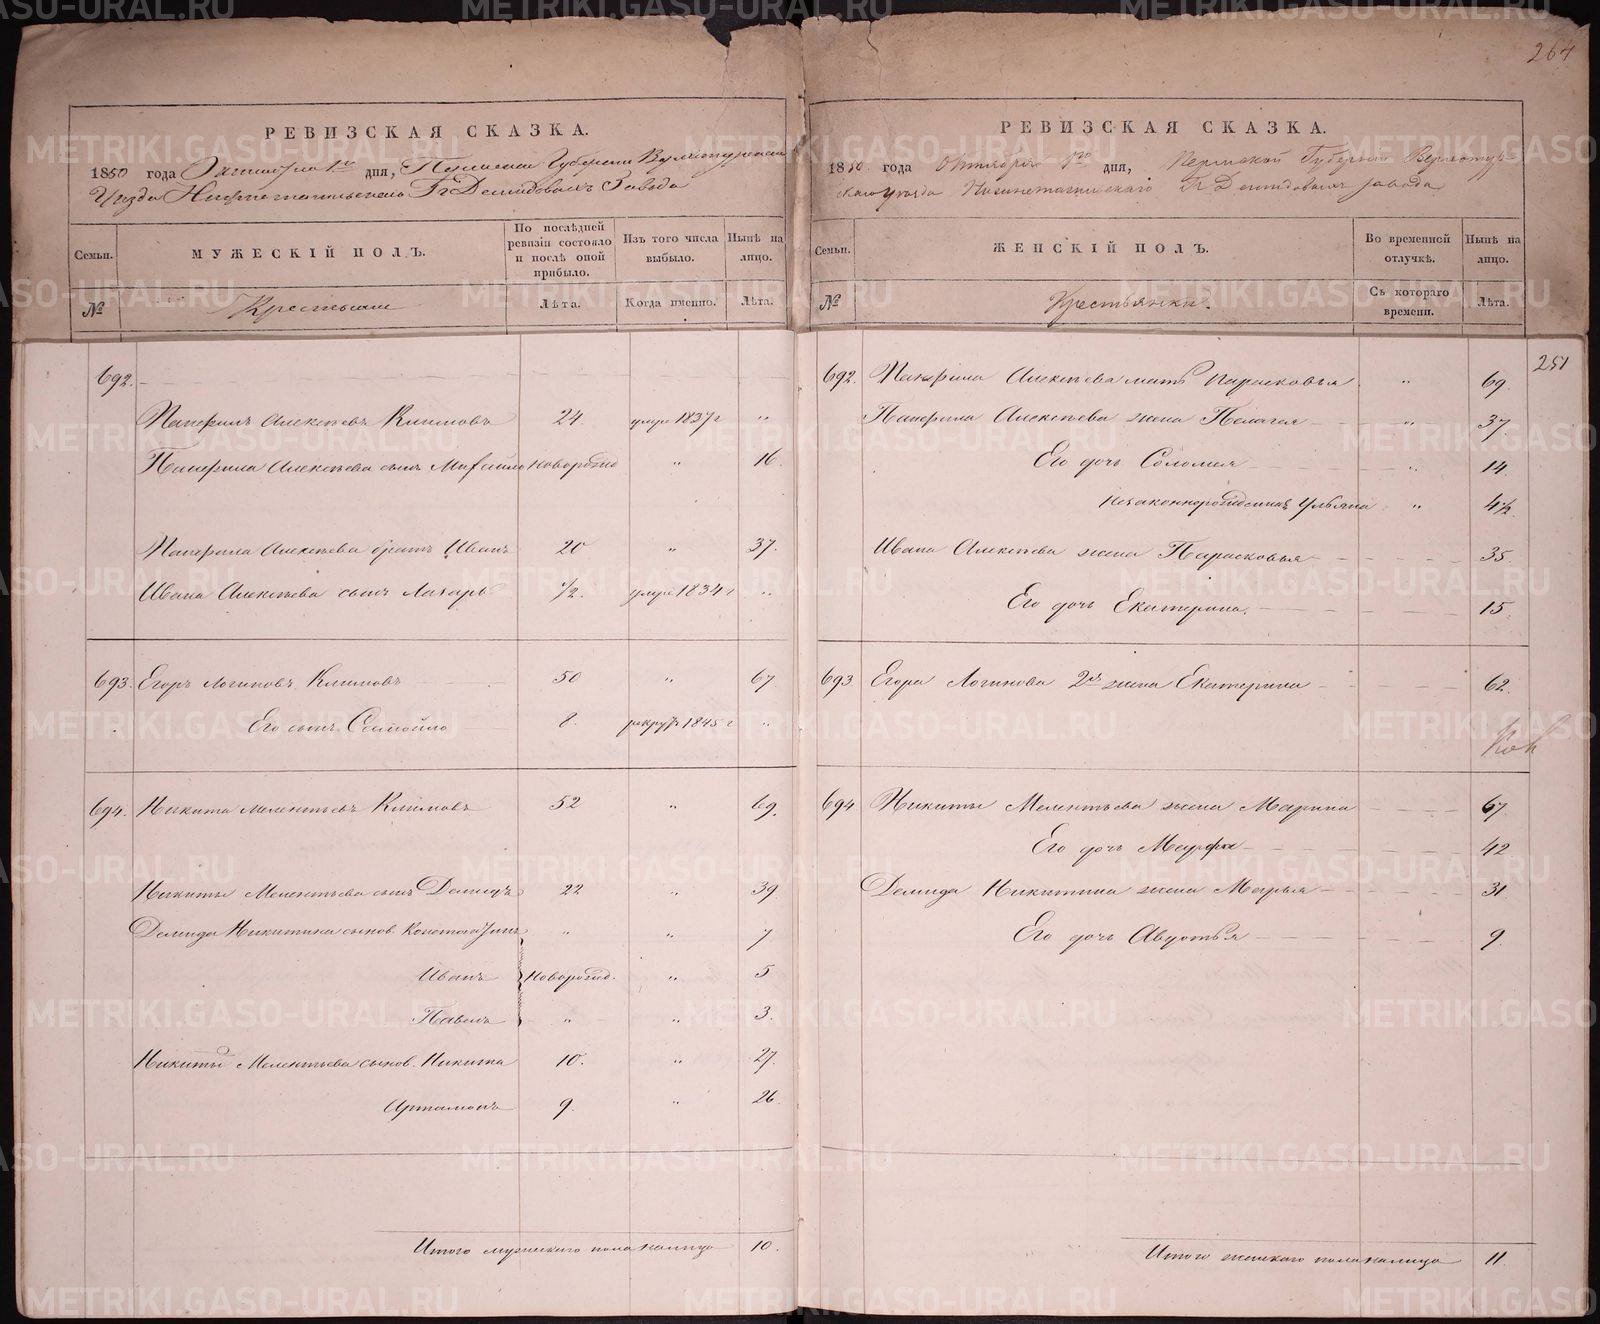 264
РЕВИЗСКАЯ СКАЗКА.
1850 года Октября 1го дня, Пермской Губернии Верхотурскаго
Уезда Нижнетагильскаго Гг Демидовыхъ Завода
Семьи.
МУЖЕСКІЙ ПОЛЪ.
По послѣдней ревизіи состояло и послѣ оной прибыло.
Изъ того числа выбыло.
Нынѣ на лицо.
№
Крестьяне
Лѣта.
Когда именно.
Лѣта.
692.
Панфилъ Алексѣевъ Климовъ 24. умре 1837 г "
Панфила Алексѣева сынъ Михайло новорожд " 16.
Панфила Алексѣева братъ Иванъ 20 " 37.
Ивана Алексѣева сынъ Лазарь 1/2. умре 1834 г "
693. Егоръ Логиновъ Климовъ 50 " 67
Его сынъ Самойло 8. рекрут 1845 г "
694. Никита Мелентьевъ Климовъ 52 " 69.
Никиты Мелентьева сынъ Демидъ 22 " 39
Демида Никитина сынов. Константинъ " " 7
Иванъ Новорожд. " 5
Павелъ " " 3.
Никиты Мелентьева сынов. Никита 10. " 27.
Артамонъ 9. " 26.
Итого мужескаго пола налицо 10.
РЕВИЗСКАЯ СКАЗКА.
1850 года Октября 1го дня, Пермской Губерніи Верхотур
скаго уезда Нижнетагильскаго Гг Демидовыхъ завода
Семьи.
ЖЕНСКІЙ ПОЛЪ.
Во временной отлучкѣ.
Нынѣ на лицо.
№
Крестьянки.
Съ котораго времени.
Лѣта.
251
692. Панфила Алексѣева мать Парасковья " 69.
Панфила Алексѣева жена Пелагея " 37
Его дочь Соломея " 14.
Незаконнорожденная Ульяна " 4½
Ивана Алексѣева жена Парасковья 35.
Его дочь Екатерина. 15.
693. Егора Логинова 2я жена Екатерина 62.
694 Никиты Мелентьева жена Марина 67
Его дочь Марфа 42
Демида Никитина жена Марья 31.
Его дочь Авдотья 9.
Итого женскаго пола налицо 11.
METRIKI.GASO-URAL.RU